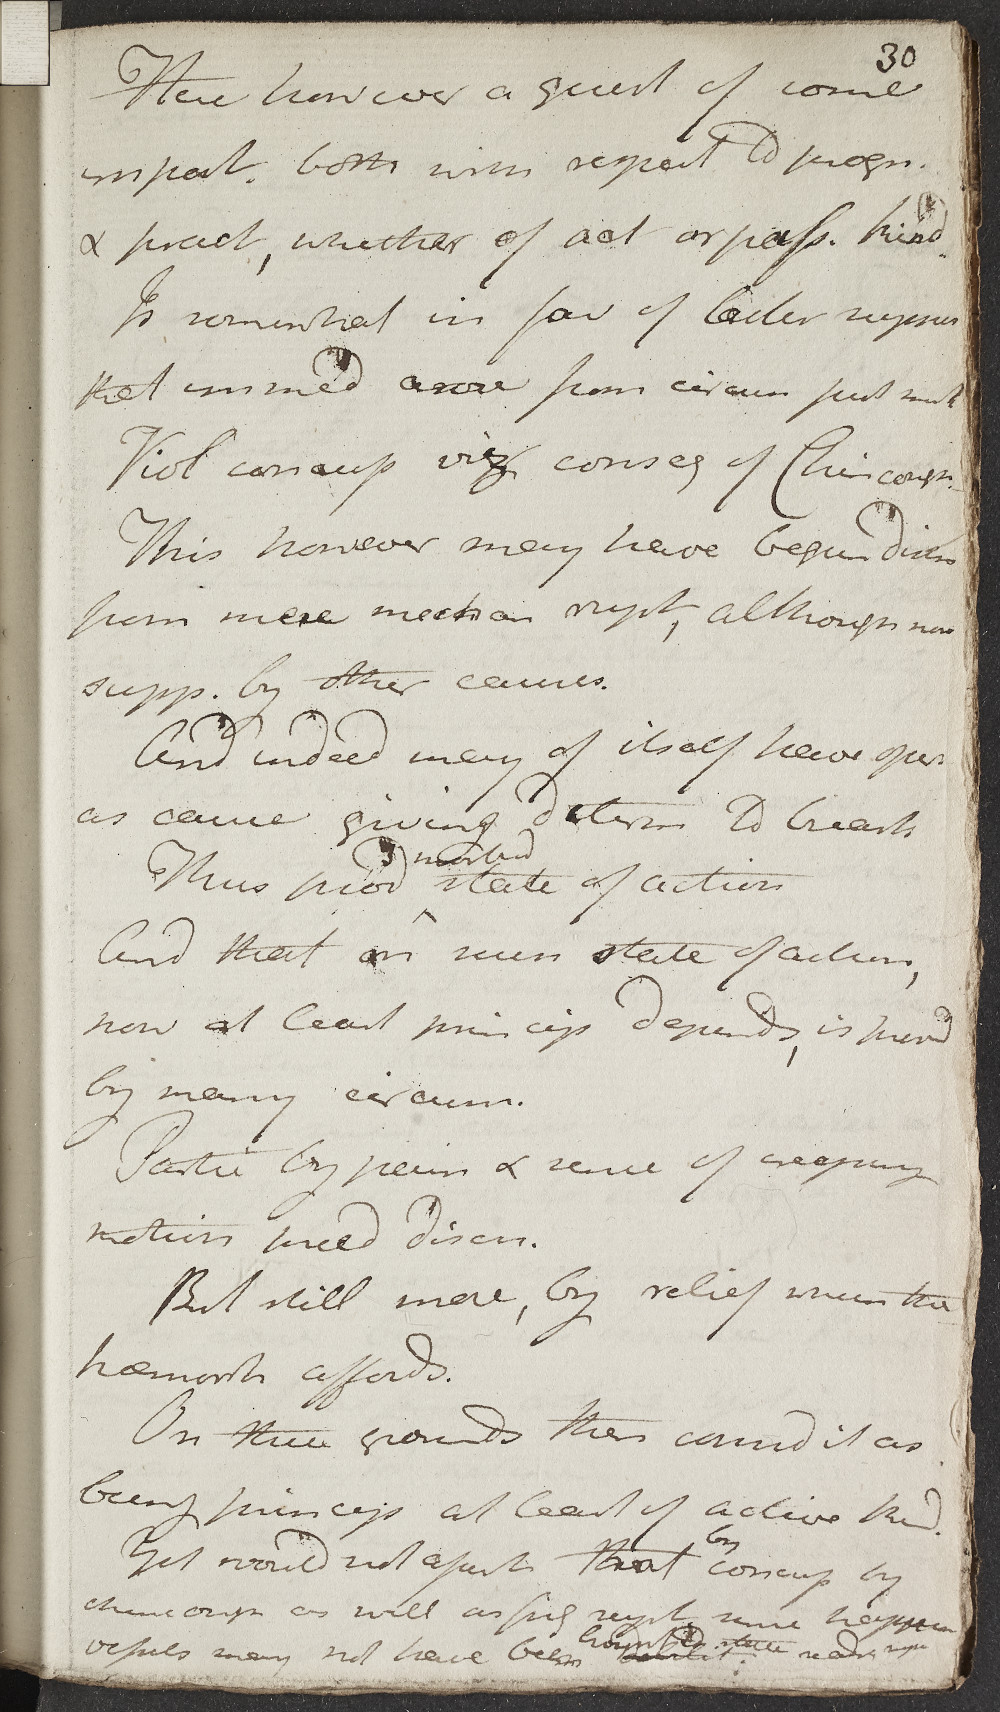 30
Here however a quest of some
import. both with respect to progn.
& pract, whether of act or pass. kind.
Is somewhat in fav of latter suppos
that immed arose from circum just ment
Viol concuss viz conseq of Chincough.
This however may have begun disch
from mere mechan rupt, although now
supp. by other causes.
And indeed may of itself have oper
as cause giving determ to breast
Thus prod morbid state of action
And that on such state of action,
now at least princip depends, is prov'd
by many circum.
Partic by pain & sense of creeping
motion preced disch.
But still more, by relief when the
hæmorrh affords.
On these grounds then consid it as
being princip at least of active kind.
Yet would not assert that by concuss by
chincough as well as sugg rupt some
vessels may not have been brought state